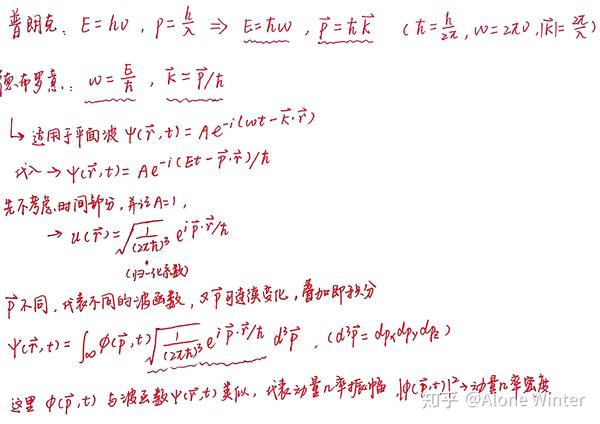 普朗克: E=hν, p=h/λ ⇒ E=ħω, p⃗=ħk⃗ (ħ=h/2π, ω=2πν, |k⃗|=2π/λ)
德布罗意: ω=E/ħ, k⃗=p⃗/ħ
↳适用于平面波 ψ(r⃗,t)=Ae^{-i(ωt-k⃗·r⃗)}
代入→ψ(r⃗,t)=Ae^{-i(Et-p⃗·r⃗)/ħ}
先不考虑时间部分,并设A=1,
→ u(r⃗)=√(1/(2πħ)³) e^{ip⃗·r⃗/ħ}
(归一化系数)
p⃗不同,代表不同的波函数,又p⃗可连续变化,叠加即积分
ψ(r⃗,t)=∫_∞ϕ(p⃗,t)√(1/(2πħ)³) e^{ip⃗·r⃗/ħ} d³p⃗, (d³p⃗=dpₓdp_ydp_z)
这里ϕ(p⃗,t)与波函数ψ(r⃗,t)类似,代表动量几率振幅,|ϕ(p⃗,t)|²→动量几率密度
知乎 @Alone Winter